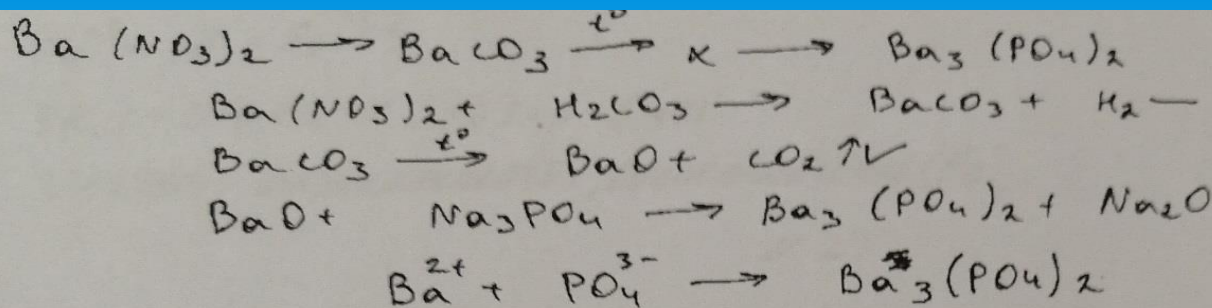 Ba(NO₃)₂ ⟶ BaCO₃ ⟶(t°) x ⟶ Ba₃(PO₄)₂
Ba(NO₃)₂ + H₂CO₃ ⟶ BaCO₃ + H₂ —
BaCO₃ ⟶(t°) BaO + CO₂ ↑ ✓
BaO + Na₃PO₄ ⟶ Ba₃(PO₄)₂ + Na₂O
Ba²⁺ + PO₄³⁻ ⟶ Ba₃(PO₄)₂